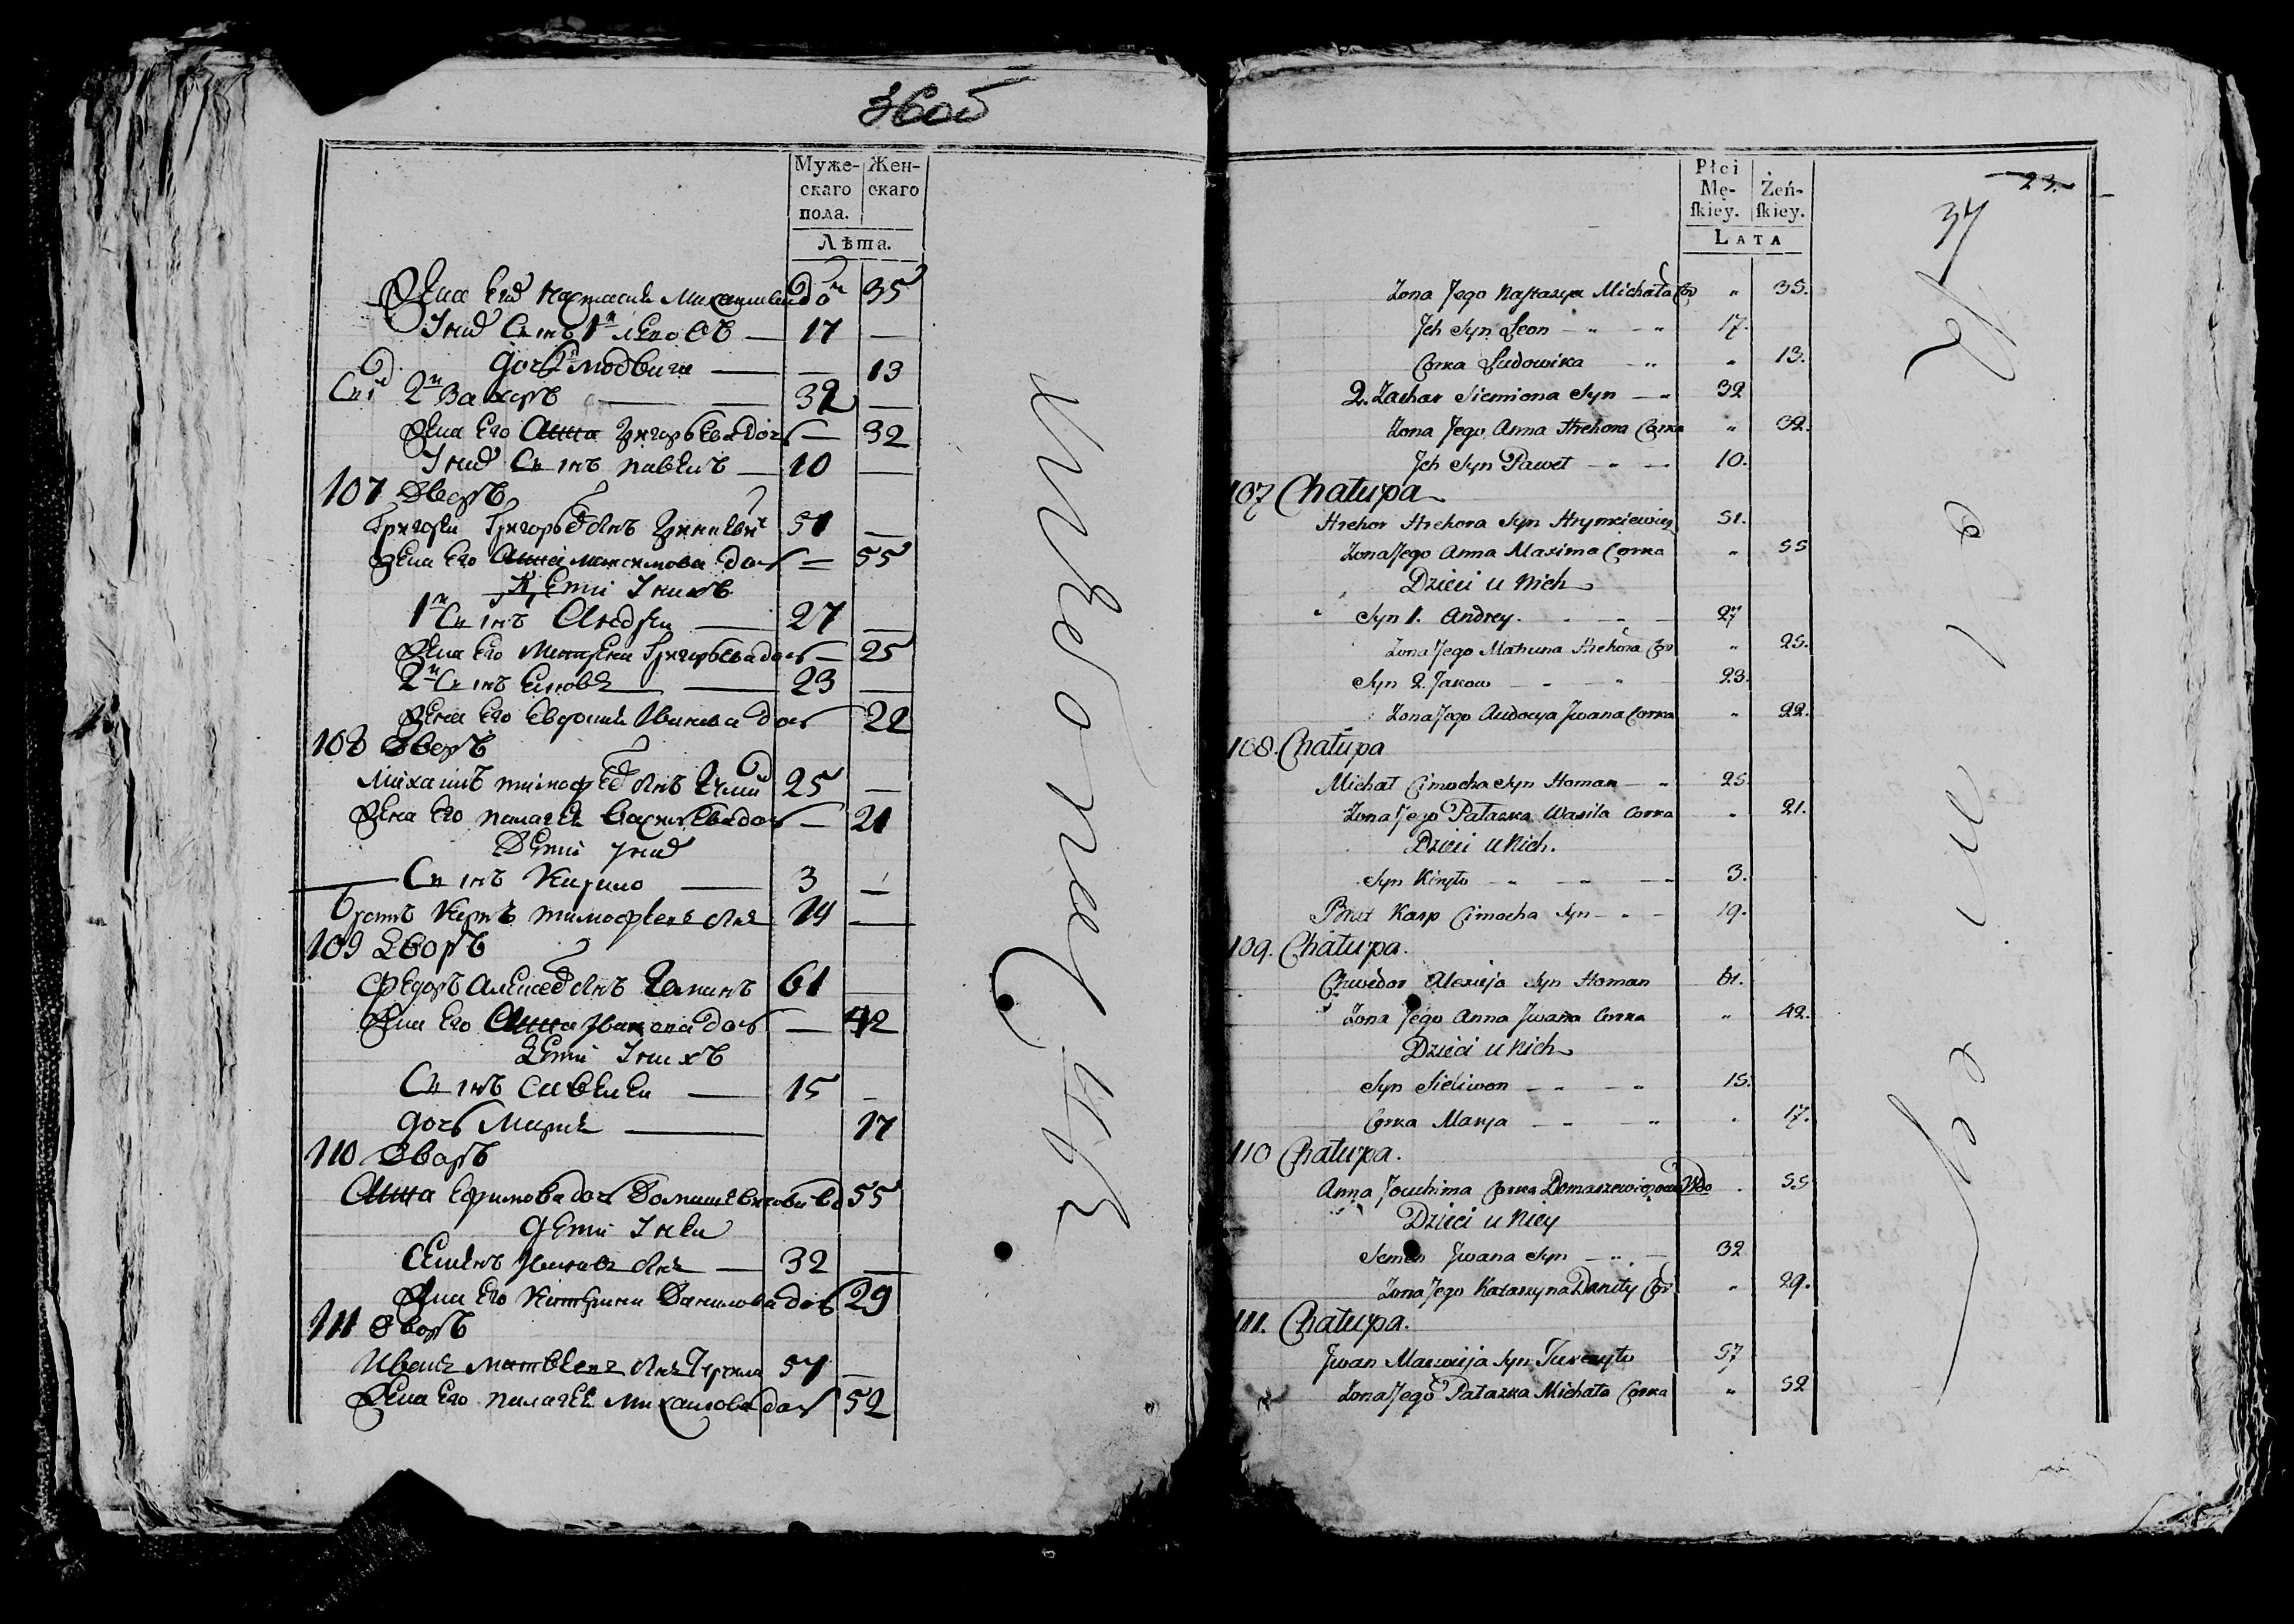 36 об
Муже-скаго пола. Жен-скаго
Лѣта.
Жена его Настасия Михайлова до 35
У них Сынъ 1й Леонъ — 17 —
дочь Людвига — — 13
2й Захаръ — 32 —
Жена его Анна Григорьева дочь — 32
У них Сынъ Павелъ — 10 —
107 Дворъ
Григорей Григорьев Сынъ 51 —
Жена его Анна Максимова дочь — 55
Дети у нихъ
1й Сынъ Андрей — 27 —
Жена его Матрена Григорьева дочь — 25
2й Сынъ — 23 —
Жена его Евдокия Иванова дочь 22
108 Дворъ
Михаилъ Тимофеев Сынъ 25 —
Жена его Палагея Васильева дочь — 21
Дети у них
Сынъ Кирило — 3 —
Братъ Карпъ Тимофеевъ Сынъ 19 —
109 Дворъ
Федоръ Алексеев Сынъ Гаманъ 61 —
Жена его Анна Иванова дочь — 42
Дети у нихъ
Сынъ Савелей — 15 —
дочь Мария — 17
110 Дворъ
Анна Ефимова дочь Домашевичова вд 55
Дети у ней
Семенъ Ивановъ Сынъ — 32 —
Жена его Катерина Данилова дочь 29
111 Дворъ
Иванъ Матвеевъ Сынъ 57 —
Жена его Палагея Михайлова дочь 52
Płci Mę-ſkiey. Żeń-ſkiey.
LATA
23.
37
Zona Jego Nastazya Michała Cor " 35.
Jch Syn Leon — " — " 17.
Corka Ludowika — " " 13.
2. Zachar Siemiona Syn — " 32
Zona Jego Anna Hrehora Corka " 32.
Jch Syn Paweł — " — 10.
107 Chałupa
Hrehor Hrehora Syn Hryncewicz 51.
Zona Jego Anna Maxima Corka " 55
Dzieci u Nich
Syn 1. Andrey. — 27
Zona Jego Matruna Hrehora Cor " 25.
Syn 2. Jakow — " — " 23.
Zona Jego Audocya Jwana Corka " 22.
108. Chałupa
Michał Cimocha Syn Homan — " 25.
Zona Jego Pałazka Wasila Corka " 21.
Dzieci u Nich.
Syn Kiryło — " — — 3.
Brat Karp Cimocha Syn — " — 19.
109. Chałupa.
Chwedor Alexieja Syn Homan 61.
Zona Jego Anna Jwana Corka " 42.
Dzieci u Nich
Syn Sieliwon — — — " 15.
Corka Marya — — — " " 17.
110 Chałupa.
Anna Jouchima Corka Domaszewiczowa Wdo " 55
Dzieci u Niey
Semen Jwana Syn — " — 32
Zona Jego Katarzyna Daniły Cor " 29.
111. Chałupa.
Jwan Maciwieja Syn Turczyło 57
Zona Jego Pałazka Michała Corka " 52